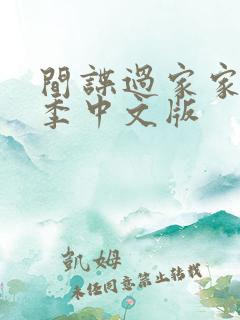 間諜過家家
季中文版
凱姆
未经同意禁止转载